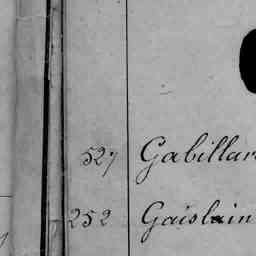 527 Gabillar
252 Gaislain